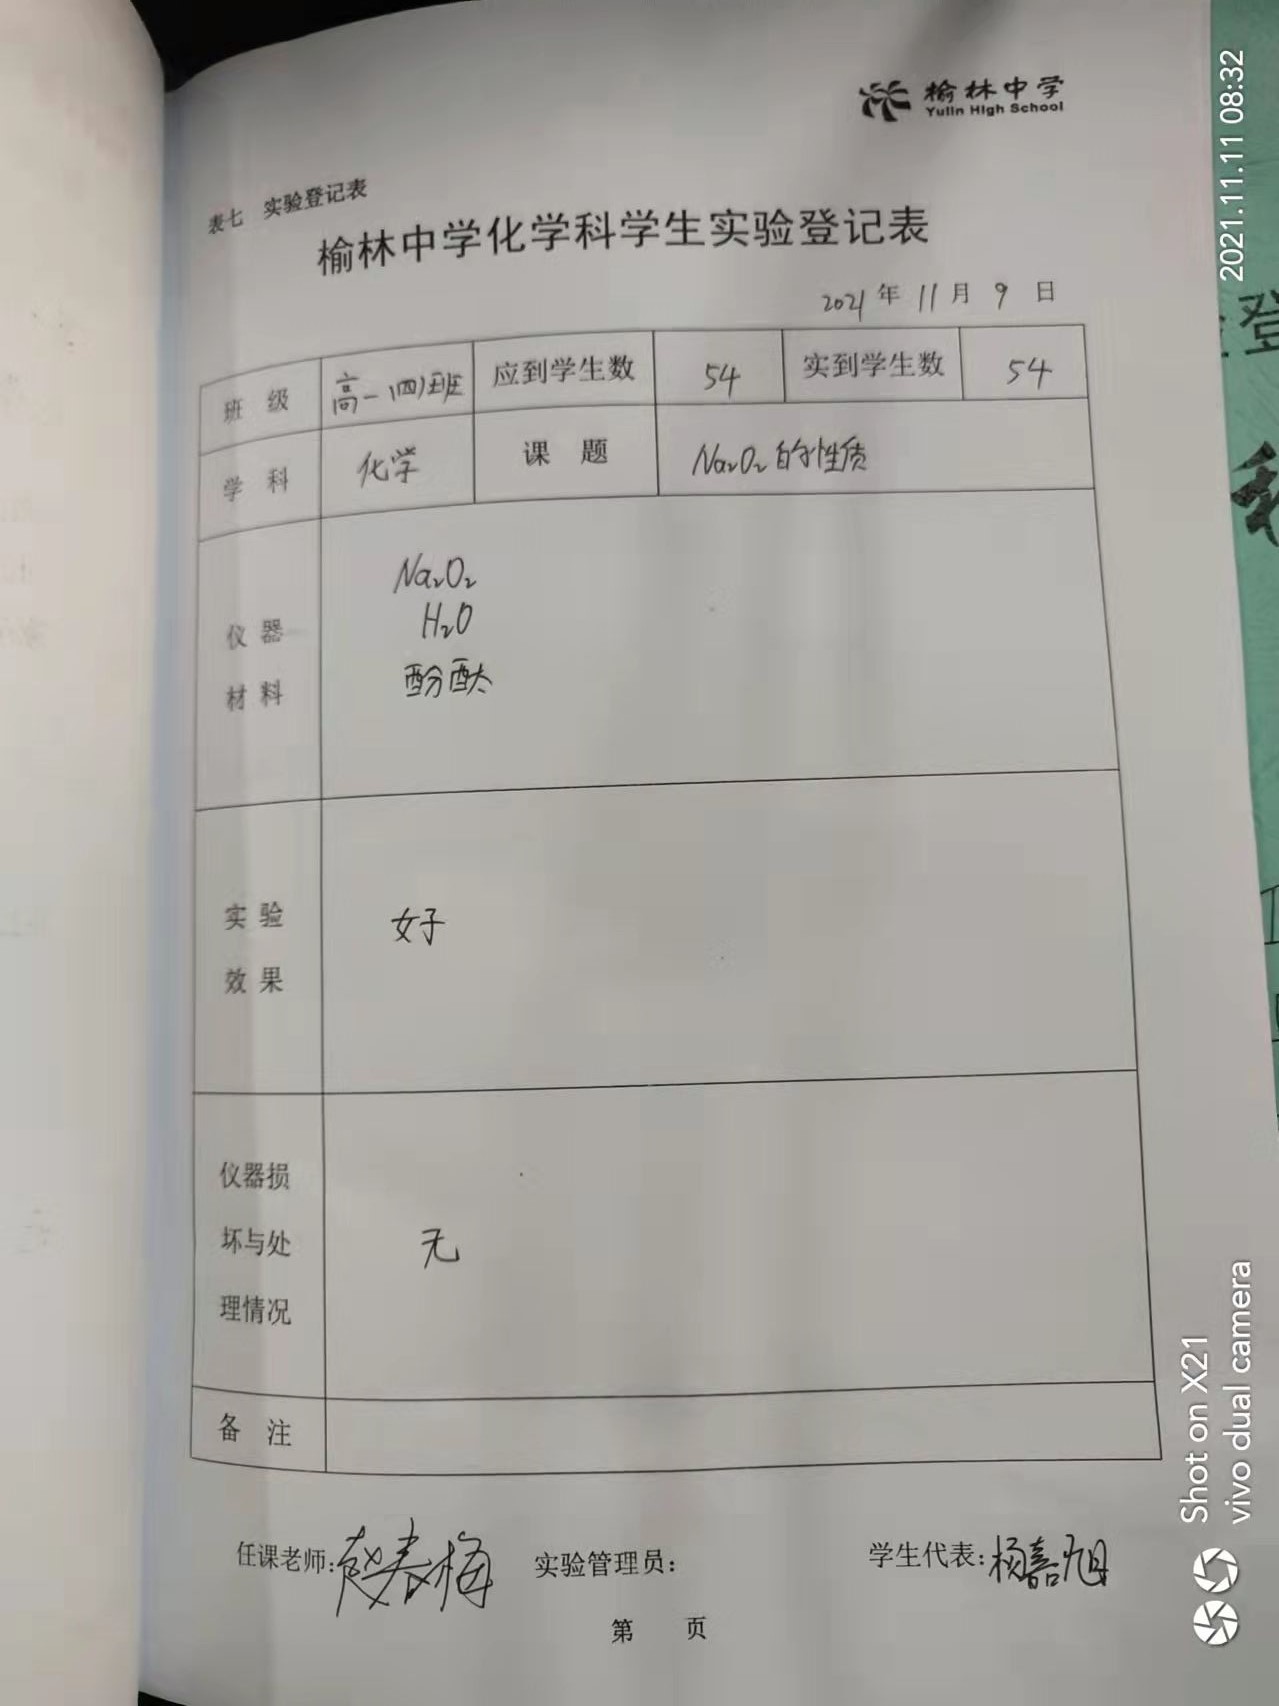 榆林中学
Yulin High School
表七 实验登记表
榆林中学化学科学生实验登记表
2021年11月9日
班级 高一(四)班 应到学生数 54 实到学生数 54
学科 化学 课题 Na₂O₂的性质
仪器
材料
Na₂O₂
H₂O
酚酞
实验
效果
好
仪器损
坏与处
理情况
无
备注
任课老师:赵春梅 实验管理员: 学生代表:杨嘉旭
第 页
2021.11.11 08:32
登
Shot on X21
vivo dual camera